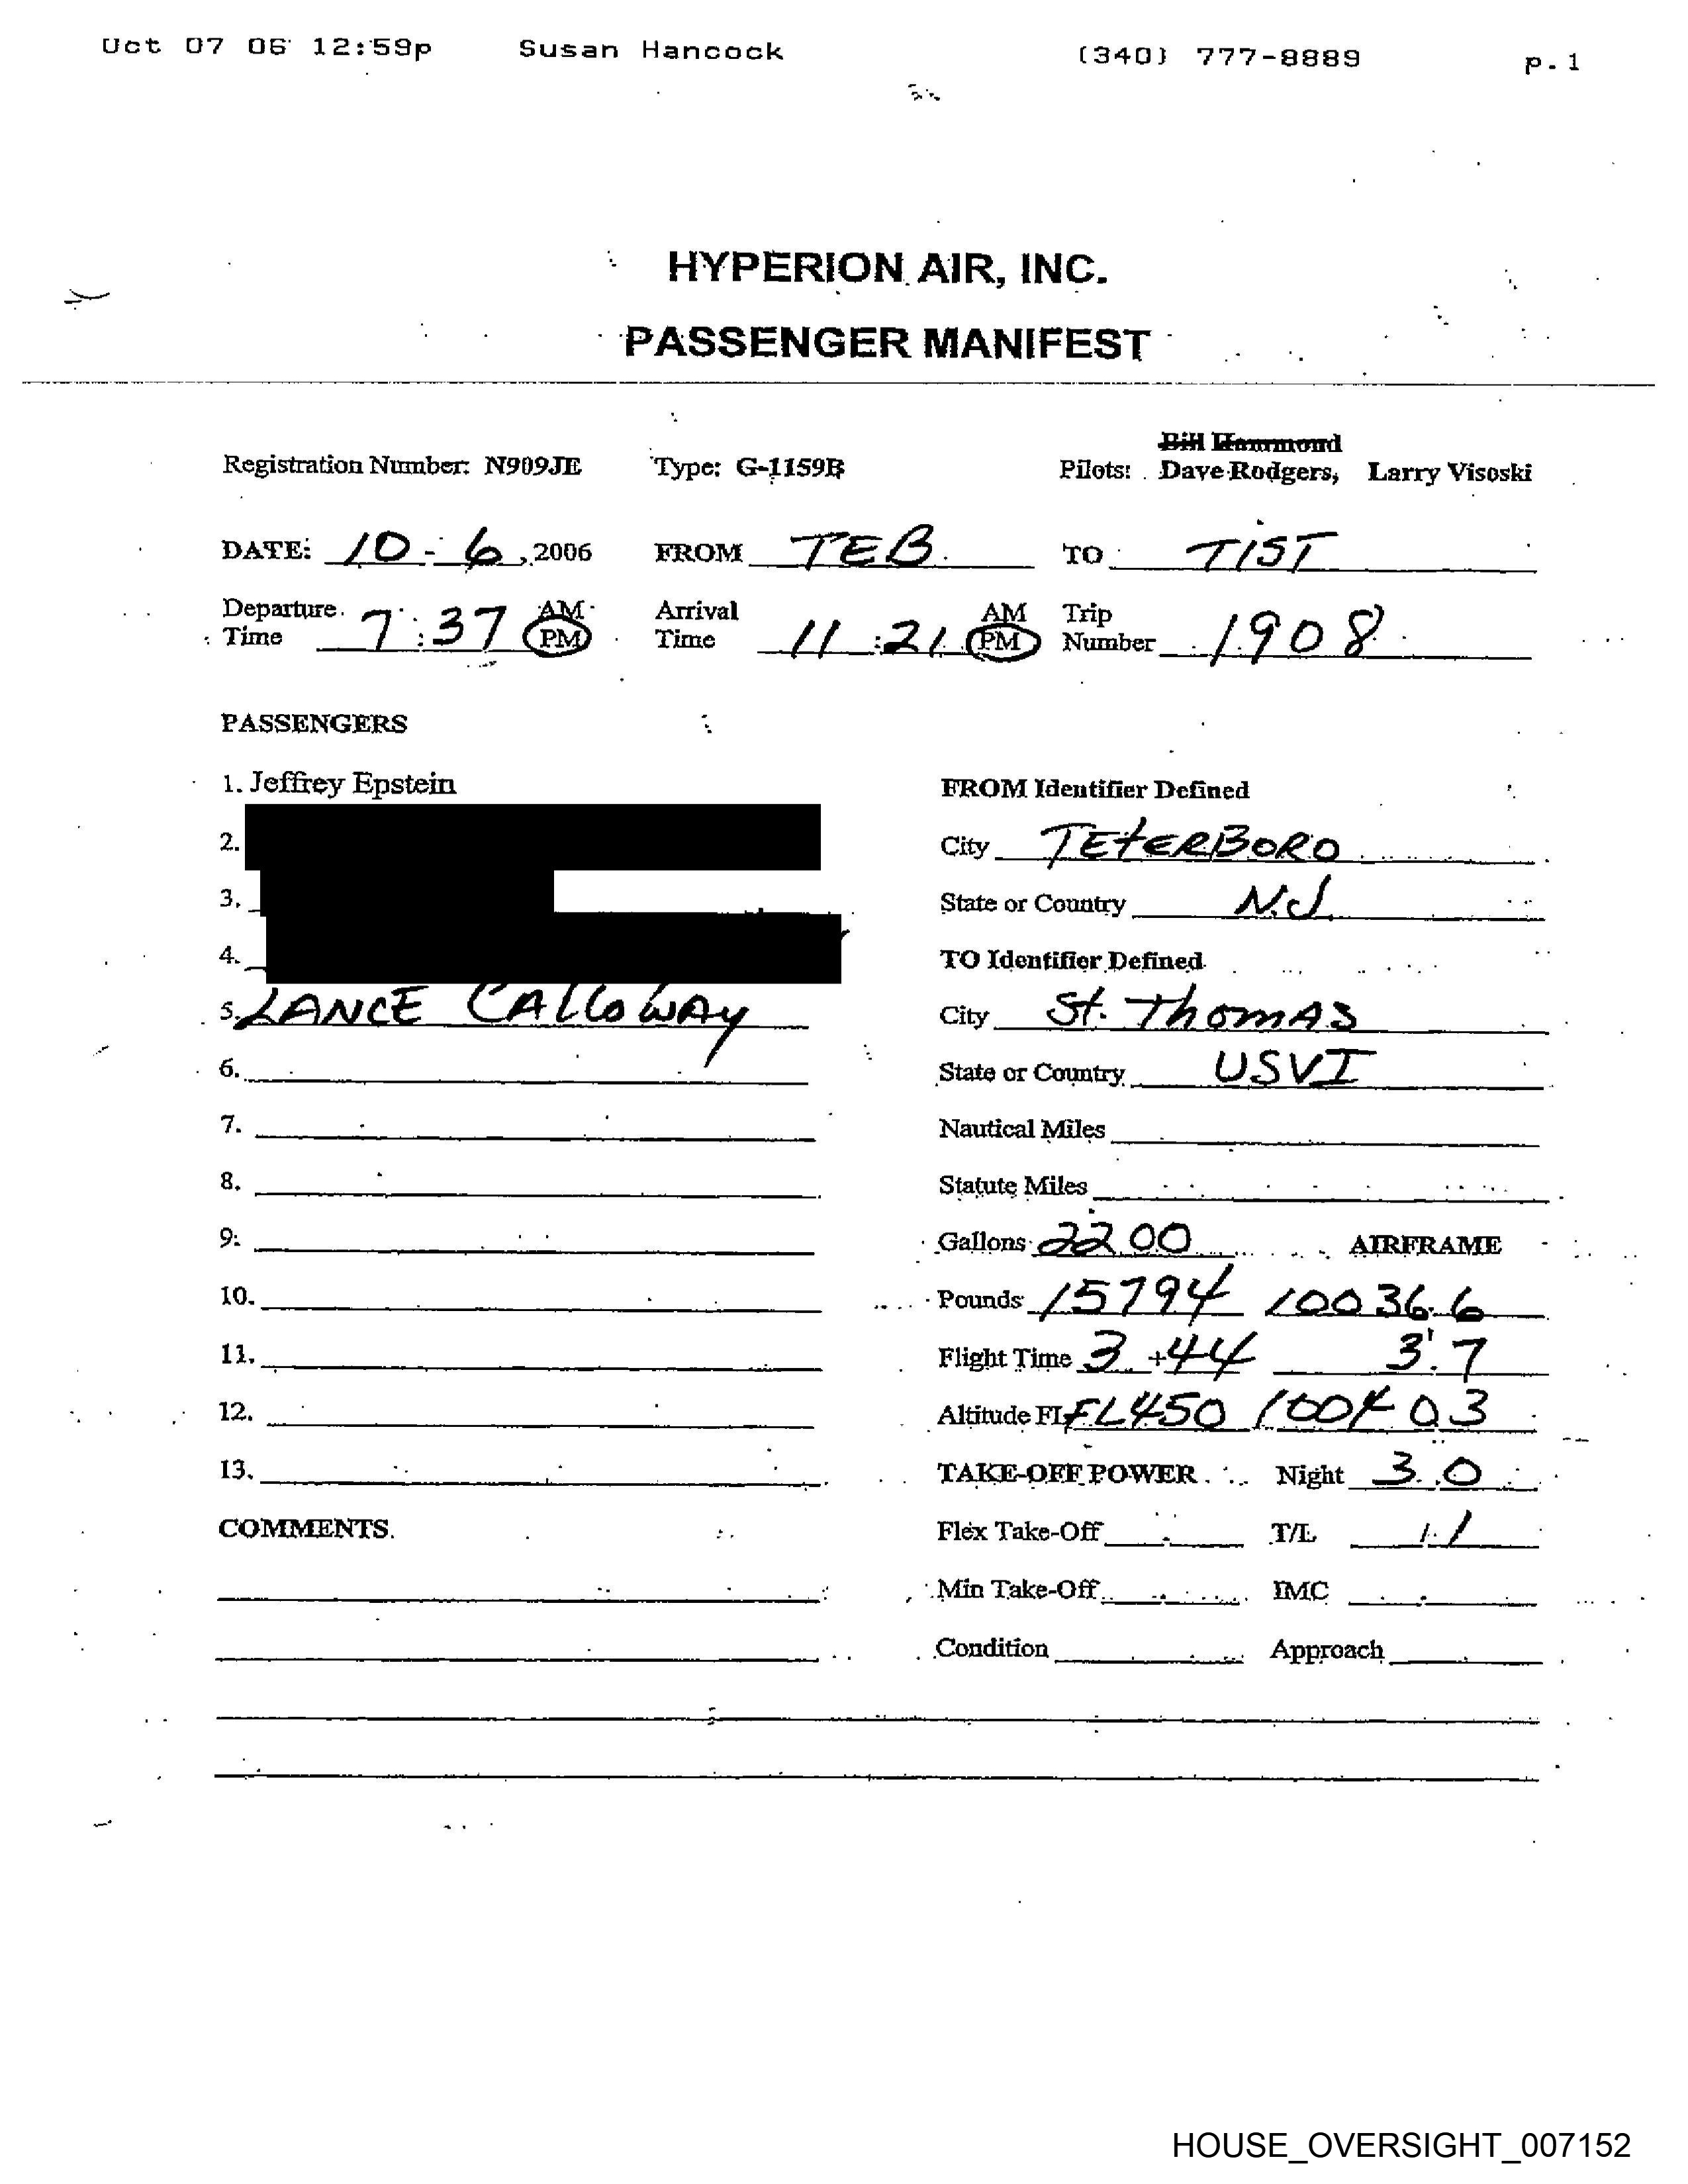 Oct 07 06 12:59p Susan Hancock (340) 777-8889 p.1
HYPERION AIR, INC.
PASSENGER MANIFEST
Bill Hammond
Registration Number: N909JE Type: G-1159B Pilots: Dave Rodgers, Larry Visoski
DATE: 10-6, 2006 FROM TEB TO TIST
Departure Time 7:37 AM PM Arrival Time 11:21 AM PM Trip Number 1908
PASSENGERS
1. Jeffrey Epstein FROM Identifier Defined
2. City TETERBORO
3. State or Country N.J.
4. TO Identifier Defined
5. LANCE CALLOWAY City St. Thomas
6. State or Country USVI
7. Nautical Miles
8. Statute Miles
9. Gallons 2200 AIRFRAME
10. Pounds 15794 10036.6
11. Flight Time 3+44 3.7
12. Altitude FL FL450 10040.3
13. TAKE-OFF POWER Night 3.0
COMMENTS. Flex Take-Off T/L 1/1
Min Take-Off IMC
Condition Approach
HOUSE_OVERSIGHT_007152